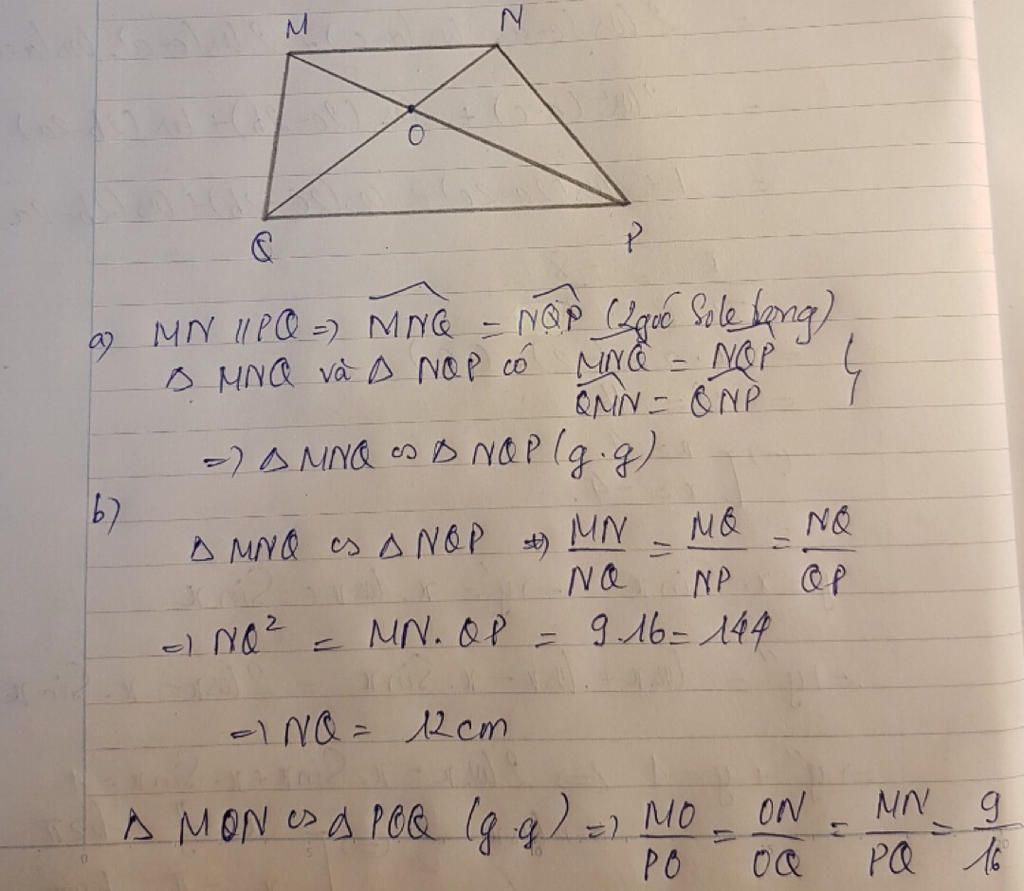 M N
O
Q P
a) MN // PQ => MNQ = NQP (2 góc Sole trong)
Δ MNQ và Δ NQP có MNQ = NQP
QMN = QNP
=> Δ MNQ ∽ Δ NQP (g.g)
b)
Δ MNQ ∽ Δ NQP => MN/NQ = MQ/NP = NQ/QP
=> NQ² = MN. QP = 9.16 = 144
=> NQ = 12cm
Δ MON ∽ Δ POQ (g.g) => MO/PO = ON/OQ = MN/PQ = 9/16